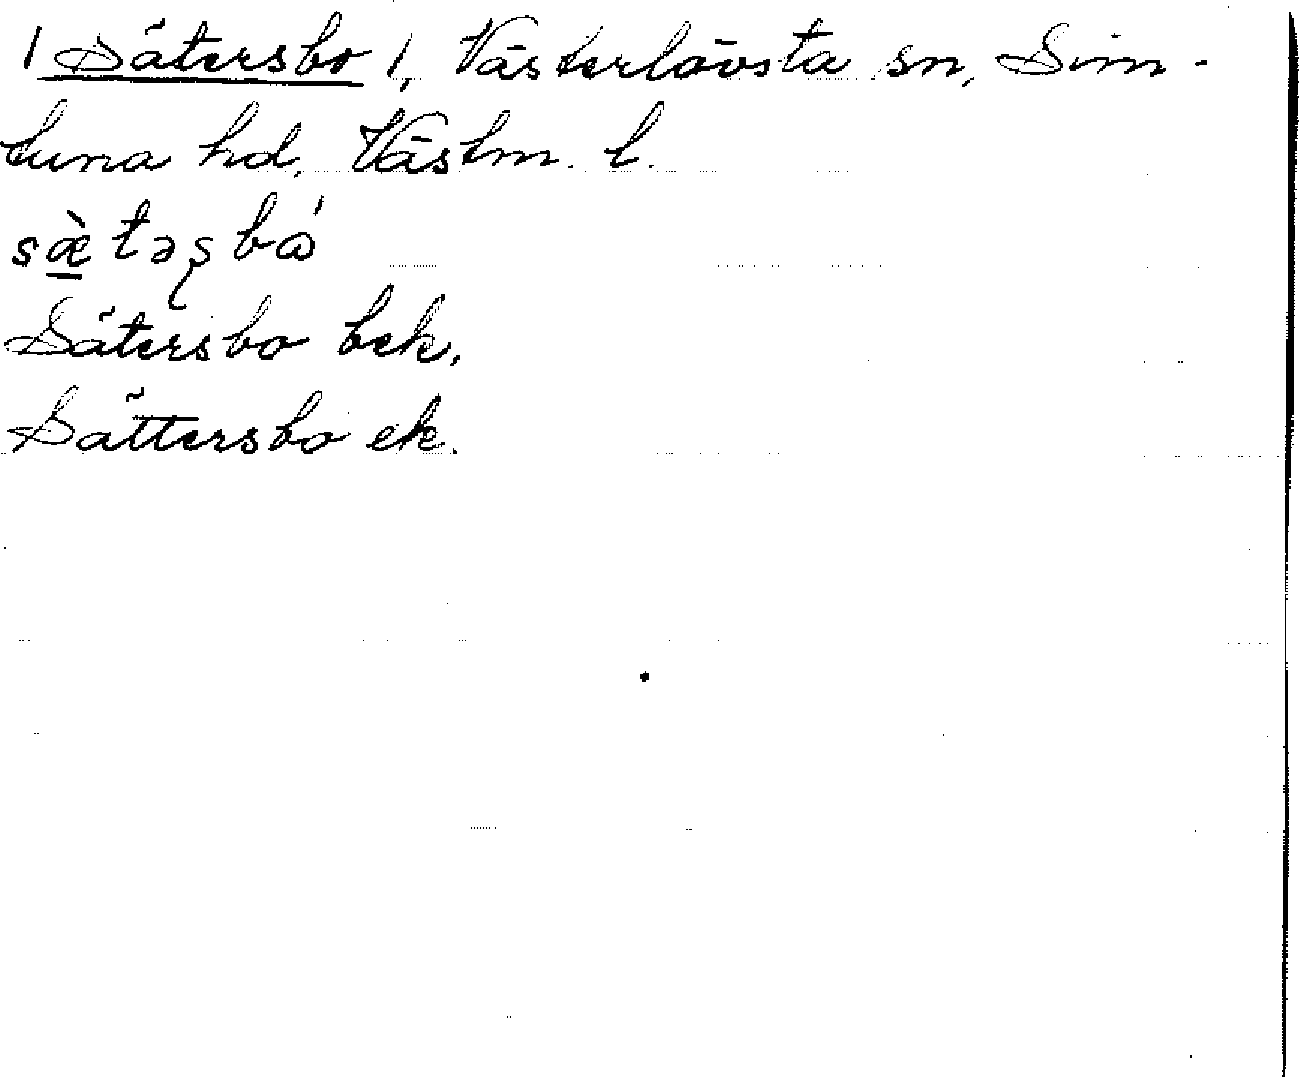 / Sätersbo /, Västerlövsta sn, Sim-
tuna hd, Västm. l.
sæ̀təʂbɷ́
Sätersbo bek.
Sättersbo ek.